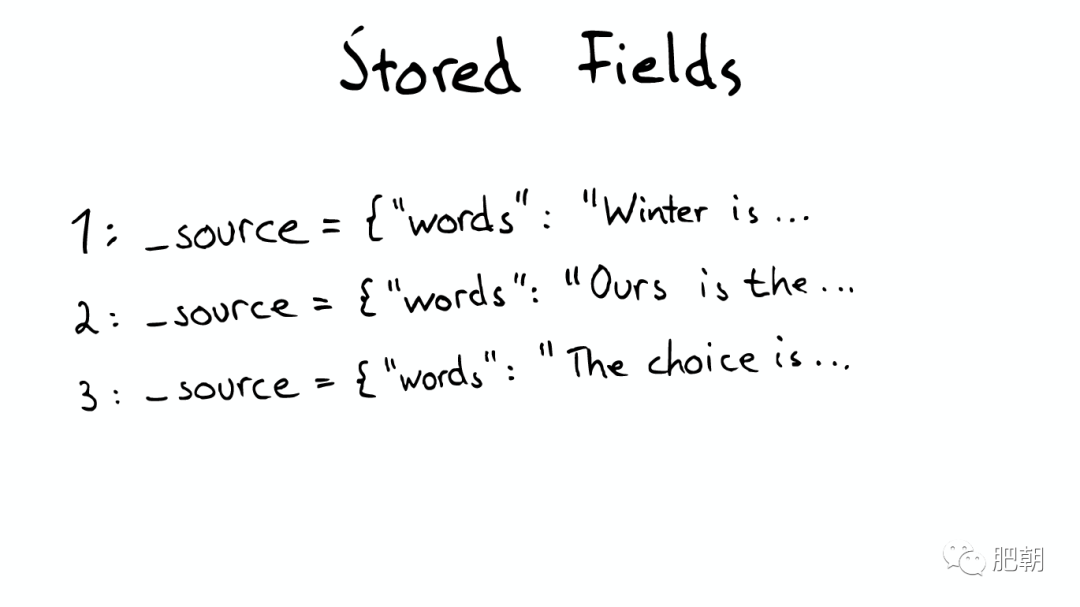 Stored Fields
1: _source = {"words": "Winter is ...
2: _source = {"words": "Ours is the ...
3: _source = {"words": "The choice is ...
肥朝